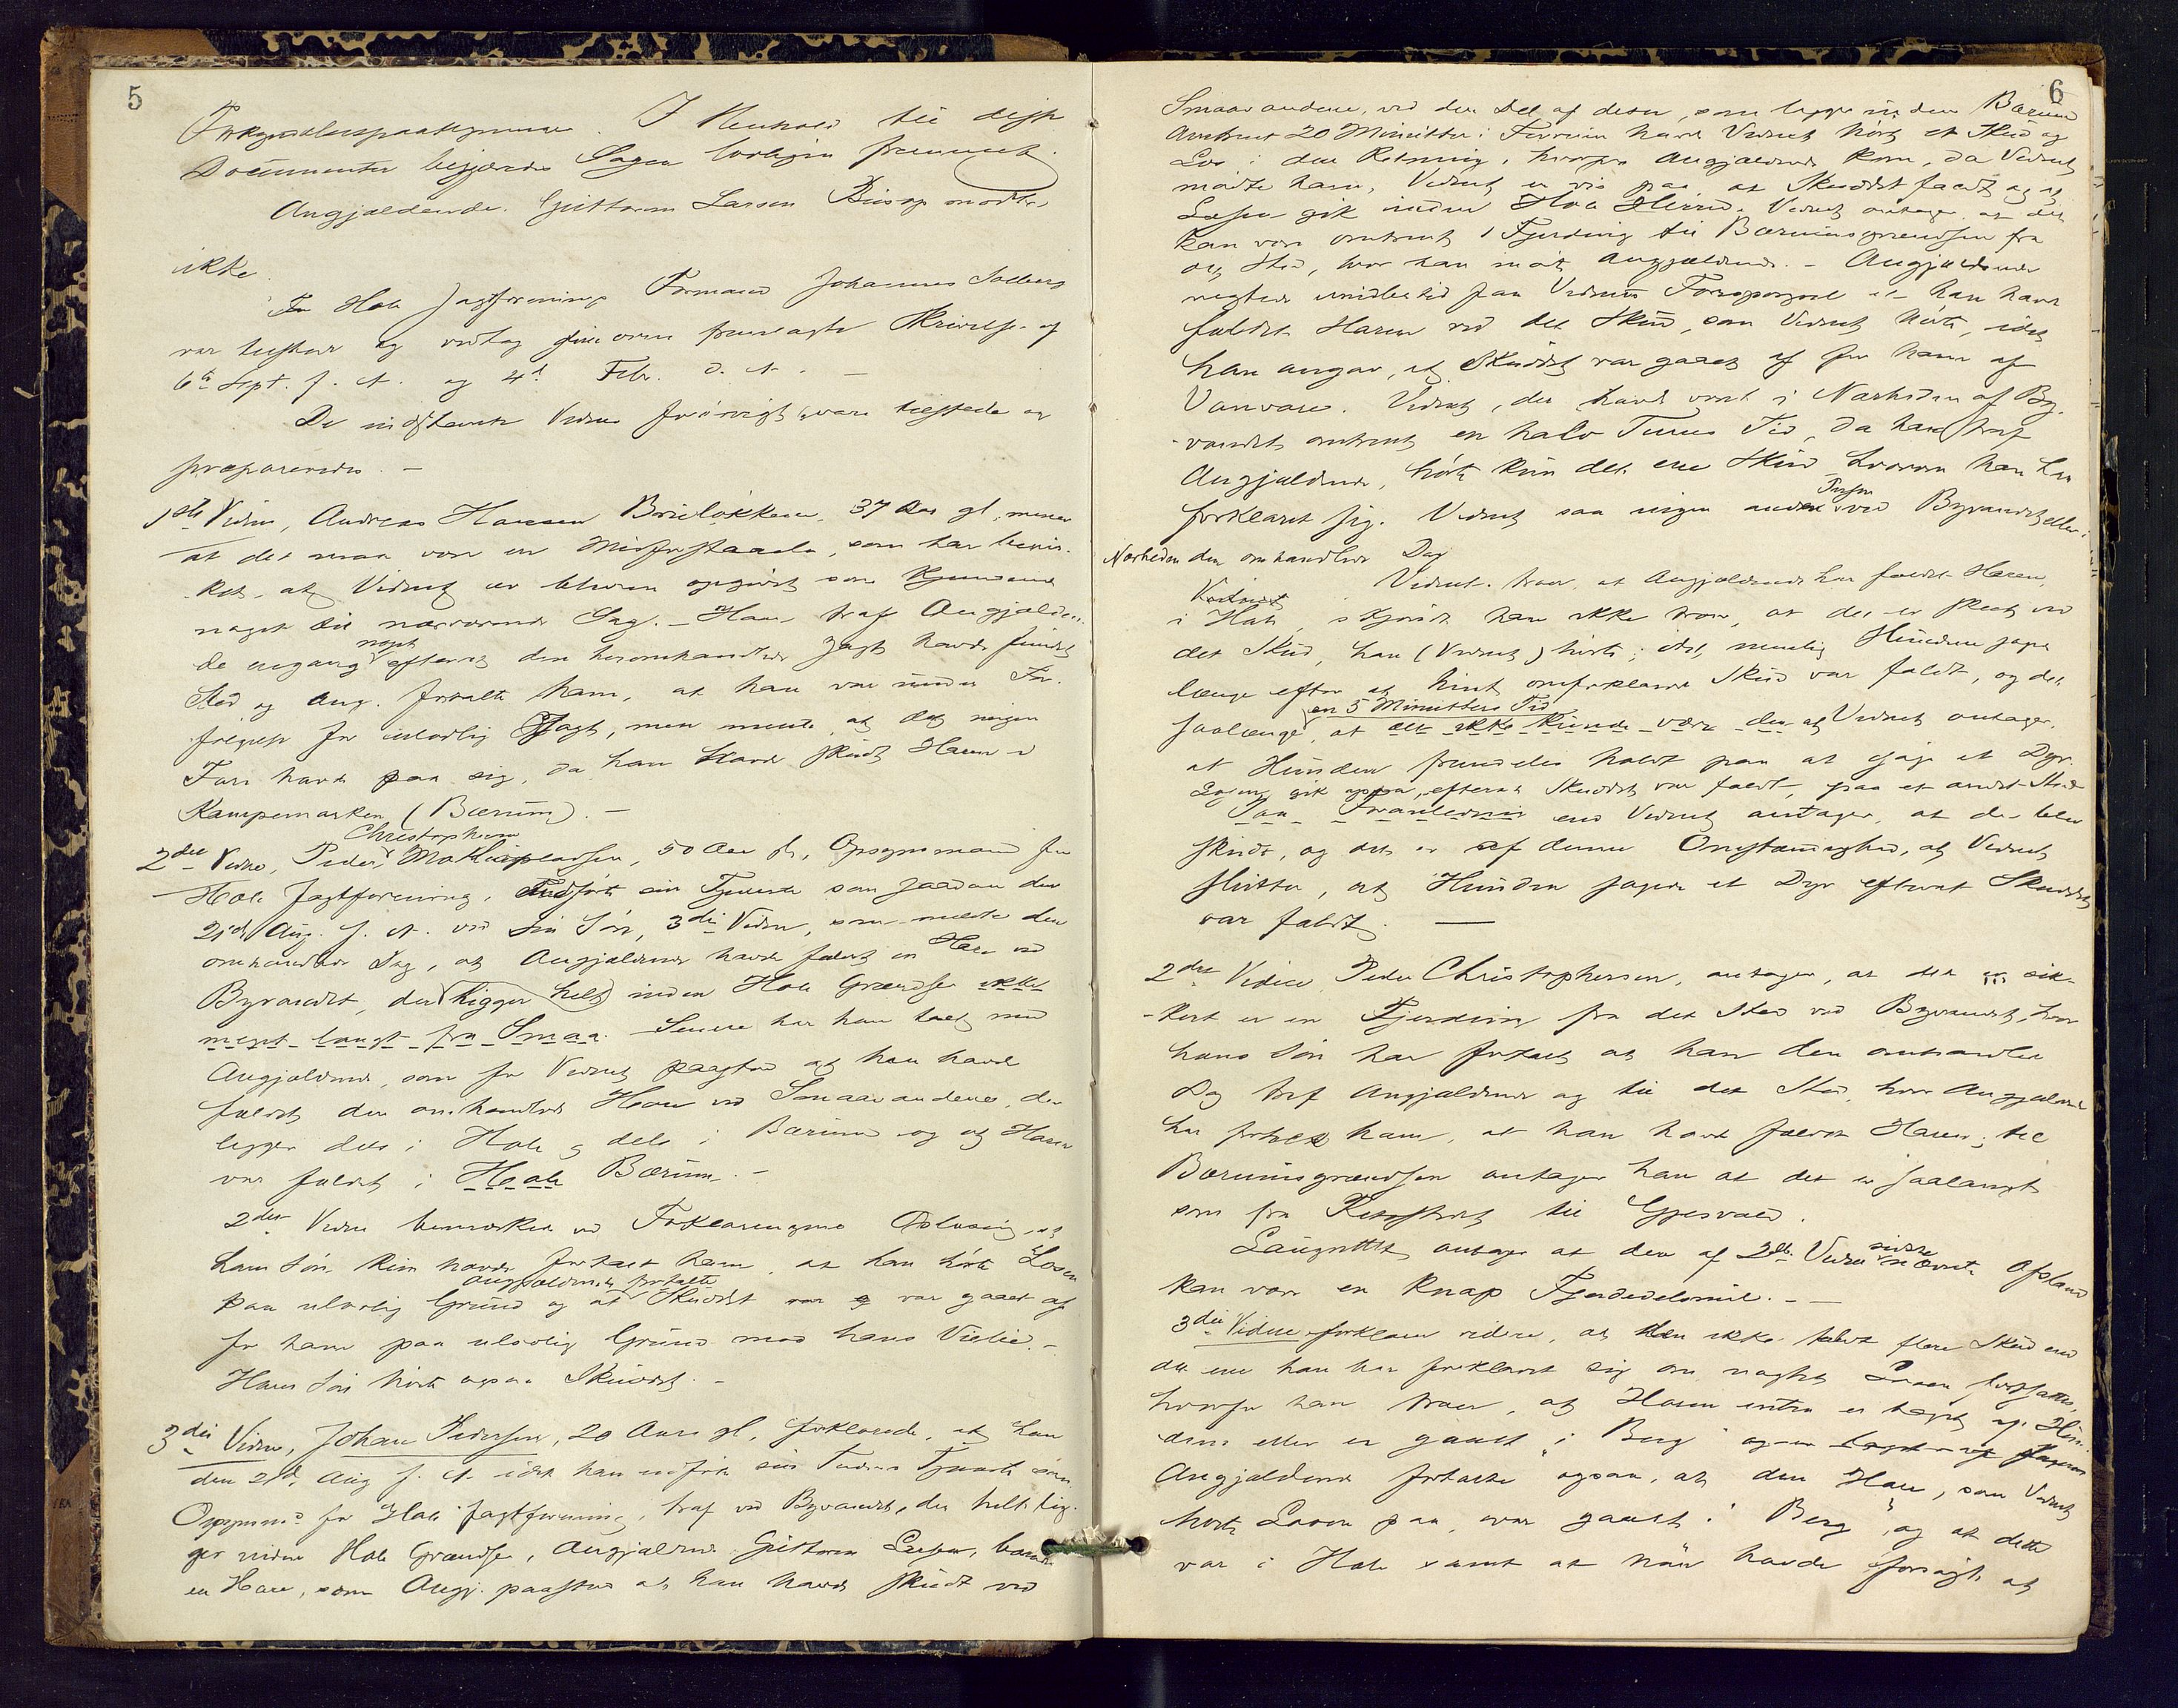 5
Forkyndelsespaategninger. I Henhold til disse
Documenter begjærdes Sagen lovligen fremmet.
Angjældende Guttorm Larsen Biisop mødte
ikke.
For Hole Jagtforenings Formand Johannes Solberg
var tilstede og vedtog fine oven fremlagte Skrivelse af
6te Sept. f. A. og 4d. Febr. d. A. –
De indstævnte Vidner forøvrigt vare tilstede og
præpareredes. –
1ste Vidne, Andreas Hansen Borieløkken, 37 Aar gl., mener
at det maa være en Misforstaaelse, som har bevir-
ket, at Vidnet er bleven opgivet som kjendende
noget til nærværende Sag. – Han traf Angjælden-
de engang noget efterat den heromhandlede Jagt havde fundet
Sted og Ang. fortalte ham, at han var under For-
følgelse for ulovlig Jagt, men mente at det ingen
Fare havde paa sig, da han havde skudt Haren i
Kampemarken (Bærum). –
2det Vidne, Peder Christophersen Mathiaspladsen, 50 Aar gl., Opsynsmand for
Hole Jagtforening, udførte sin Tjeneste som saadan den
21de Aug. f. A. ved sin Søn, 3die Vidne, som meldte den
omhandlede Dag, at Angjældende havde fældet en Hare ved
Byvandet, der ligger helt inden Hole Grændse ikke
meget langt fra Smaa. Senere har han talt med
Angjældende, som for Vidnet paastod at han havde
fældet den omhandlede Hare ved Smaavandene, der
ligger dels i Hole og dels i Bærum og at Haren
var fældet i Hole Bærum. –
2det Vidne bemærker ved Forklaringens Oplæsning, at
hans Søn kun havde fortalt ham, at han hørte Losen
paa ulovlig Grund og at Angjældende fortalte Skuddet var og var gaaet af
for ham paa ulovlig Grund mod hans Villie. –
Hans Søn hørte ogsaa Skuddet. –
3die Vidne, Johan Pedersen, 20 Aar gl., forklarede, at han
den 21de Aug. f. A. idet han udførte sin Faders Tjeneste som
Opsynsmd for Hole Jagtforening, traf ved Byvandet, der helt lig-
ger inden Hole Grændse, Angjældende Guttorm Larsen, bærende
en Hare, som Angj. paastod at han havde skudt ved
6
Smaavandene, ved den Del af disse, som ligger inden Bærum
Omtrent 20 Minutter i Forveien havde Vidnet hørt et Skud og
Los i den Retning, hvorfra Angjældende kom, da Vidnet
mødte ham. Vidnet er vis paa, at Skuddet faldt og at
Losen gik inden Hole Herred. Vidnet antager at det
kan være omtrent 1 Fjerding til Bærumsgrændsen fra
det Sted, hvor han mødte Angjældende. – Angjældende
negtede imidlertid paa Vidnets Forespørgsel at han havde
fældet Haren ved det Skud, som Vidnet hørte, idet
han angav, at Skuddet var gaaet af for ham af
Vanvare. Vidnet, der havde været i Nærheden af By-
vandet omtrent en halv Times Tid, da han traf
Angjældende, hørte kun det ene Skud hvorom han har
forklaret sig. Vidnet saa ingen anden Person ved Byvandet eller i
Nærheden den omhandlede Dag.
Vidnet troer, at Angjældende har fældet Haren
i Hole, skjøndt han ikke troer, at det er skeet ved
det Skud, han (Vidnet) hørte; idet nemlig Hunden jagede
længe efter at hint omforklarede Skud var faldt, og det
saalænge en 5 Minutters Tid, at det ikke kunde være den at Vidnet antager,
at Hunden fremdeles holdt paa at jage et Dyr.
Losen gik ogsaa, efterat Skuddet var faldt, paa et andet Sted
end Vidnet antager, at det blev
skudt, og det er af denne Omstændighed, at Vidnet
slutter, at Hunden jagede et Dyr efterat Skuddet
var faldt. –
2det Vidne Peder Christophersen, antager, at det er sik-
kert er en Fjerding fra det Sted ved Byvandet, hvor
hans Søn har fortalt at han den omhandlede
Dag traf Angjældende og til det Sted, hvor Angjældende
har fortalt ham, at han havde fældet Haren; til
Bærumsgrændsen antager han at det er saalangt
som fra Retsstedet til Gjesvold.
Laugrettet antager at den af 2det Vidne sidst nævnte Afstand
kan være en knap Fjerdedelsmil. –
3die Vidne forklarer videre, at der ikke faldt flere Skud end
det ene han har forklaret sig om uagtet Losen fortsattes,
hvorfor han troer, at Haren enten er tagen af Hun-
den eller er gaaet i "Berg"
Angjældende fortalte ogsaa, at den Hare, som Vidnet
hørte Losen paa, var gaaet i "Berg", og at dette
var i Hole samt at han havde forsøgt at